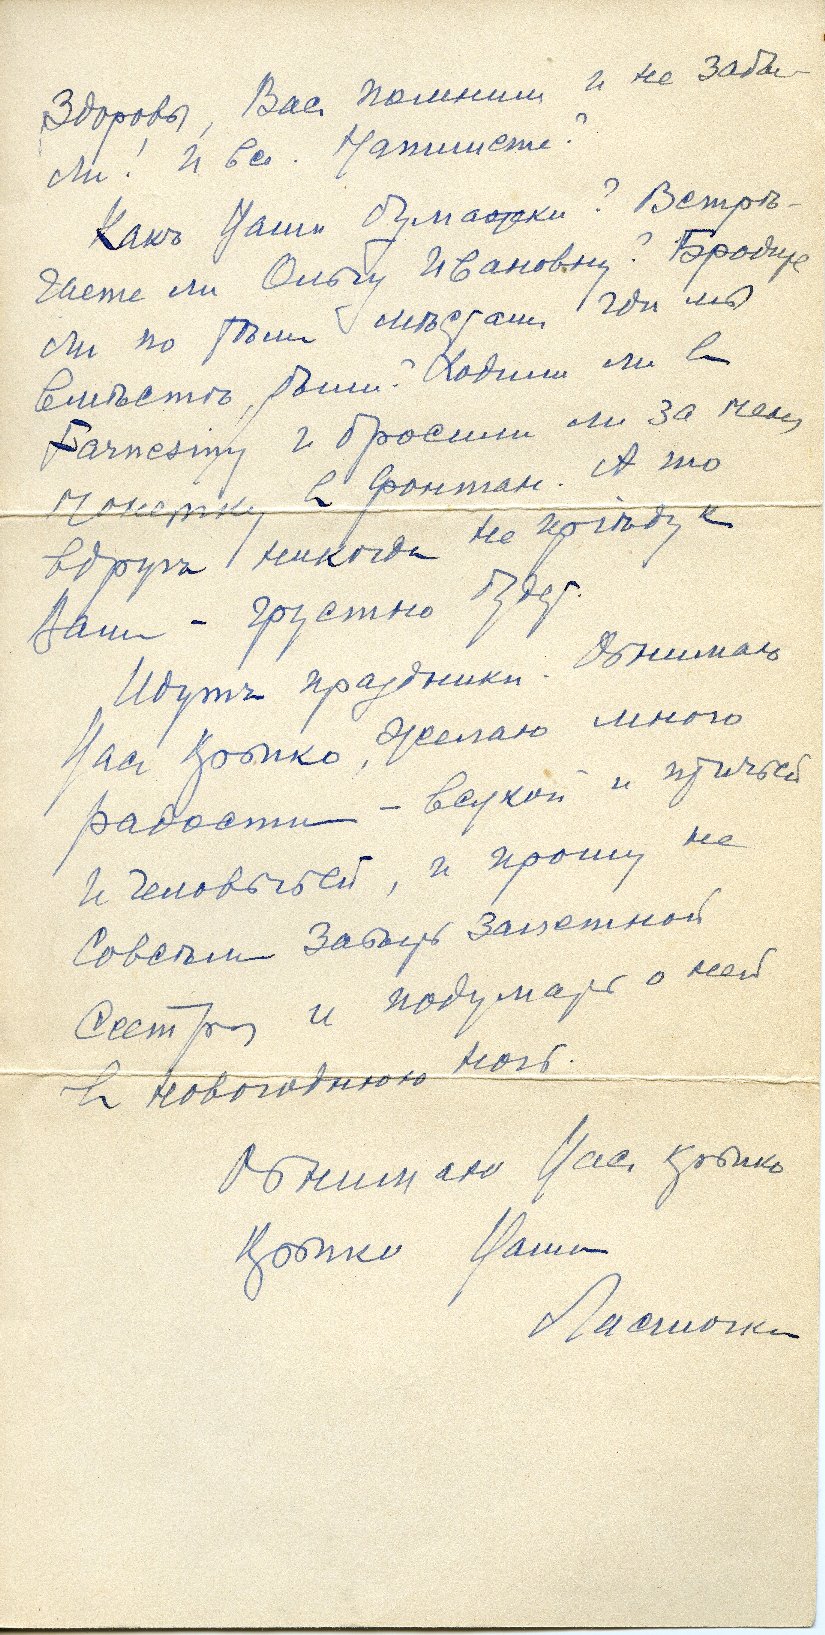 Здоровы, Вас помнили и не забы-
ли! И все. Напишете?
Какъ Ваши бумажки? Встрѣ-
чаете ли Ольгу Ивановну? Бродите
ли по тѣмъ мѣстамъ гдѣ мы
вмѣстѣ были? Ходили ли в
Farnesin'у и бросили ли за меня
монетку в фонтан. А то
вдругъ никогда не пріѣду к
Вамъ – грустно будет.
Идутъ праздники. Обнимаю
Вас крѣпко, желаю много
радости – всякой и птичьей
и человѣчьей, и прошу не
совсѣмъ забыть
сестру и подумать о ней
в новогоднюю ночь.
Обнимаю Вас крѣпко
крѣпко Ваша
Ласточка